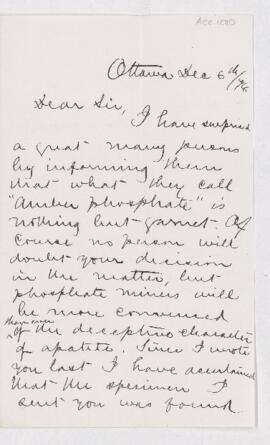 Acc-1280
Ottawa Dec 6th/76
Dear Sir,
I have surprised
a great many persons
by informing them
that what they call
"Amber phosphate" is
nothing but garnet. Of
course no person will
doubt your decision
in the matter, but
phosphate miners will
be more convinced
than ever
of the deceptive character
of apatite. Since I wrote
you last I have ascertained
that the specimen I
sent you was found